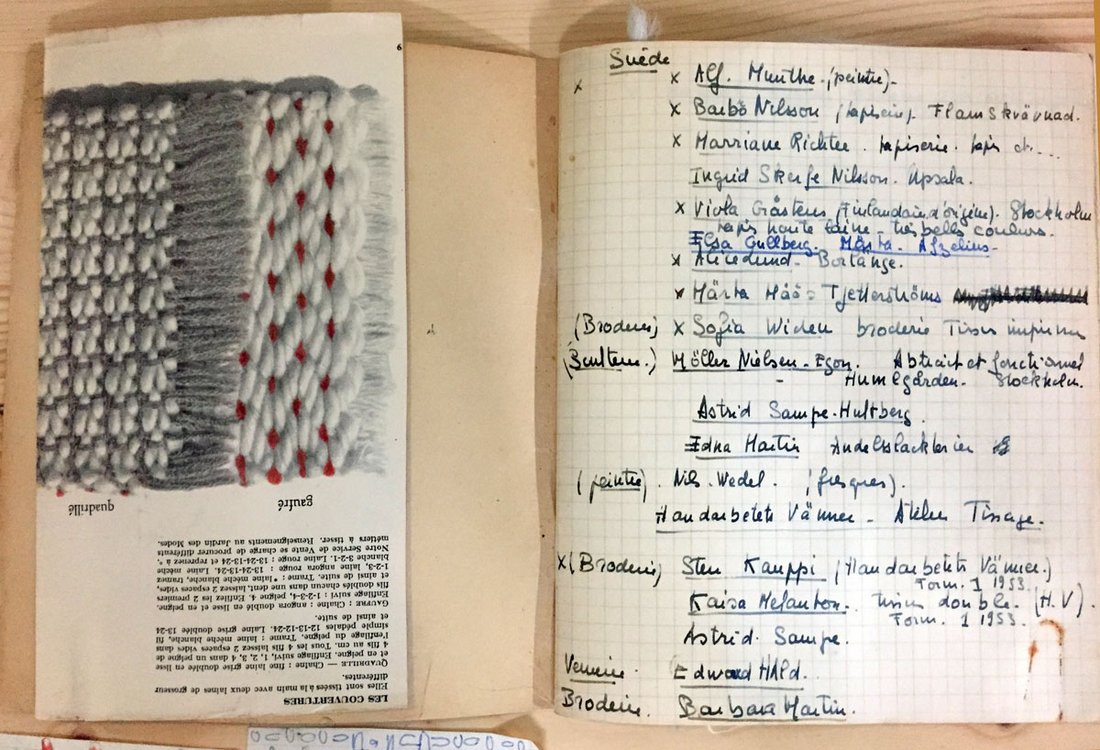 LES COUVERTURES
Elles sont tissées à la main avec deux laines de grosseur
différentes.
QUADRILLÉ — Chaîne : fine laine grise doublée en lisse
et en peigne. Enfilage suivi, 1, 2, 3, 4 dans un peigne de
4 fils au cm. Tous les 4 fils laissez 2 espaces vides dans
l'enfilage du peigne. Trame : laine mèche blanche, fil
simple pédales 12-13-12-24. Laine grise doublée 13-24
et ainsi de suite.
GAUFRÉ : Chaîne : angora doublé en lisse et en peigne.
Enfilage suivi : 1-2-3-4, peigne 4. Enfilez les 2 premiers
fils doublés chacun dans une dent, laissez 2 espaces vides,
et ainsi de suite. Trame : *laine mèche blanche, tramez
1-2,3, laine angora rouge : 13-24-13-24. Laine mèche
blanche 3-2-1. Laine rouge : 13-24-13-24 et reprenez à *.
Notre Service de Vente se charge de procurer différents
métiers à tisser. Renseignements au Jardin des Modes.
gaufré
quadrillé
6
Suède
x x Alf. Munthe. (peintre)-
x Barbö Nilsson (tapisserie) Flamskvävnad.
x Marriane Richter. tapiserie. tapis et...
Ingrid Skerfe Nilsson. Upsala.
x Viola Gråstens (Finlandaise d'origine). Stockholm
tapis haute laine - très belles couleurs.
Elsa Gullberg. Märta. Afzelius-
x Alice Lund. Borlänge.
x Märta Måås Fjetterströms
(Broderie) x Sofia Widen broderie Tissus imprimés
(Sculteur.) Möller Nielsen-Egon. Abstrait et fonctionnel
- Humlegården. Stockholm.
Astrid Sampe-Hultberg.
Edna Martin
(peintre). Nils. Wedel. (fresques).
Handarbetets Vänner - Atelier Tissage.
x (Broderie) Sten Kauppi (Handarbetets Vänner.)
Form. 1 1953.
Kaisa Melanton. tissus double. (H.V)
Form. 1 1953.
Astrid. Sampe.
Verrerie Edward HAld.
Broderie. Barbara Martin.